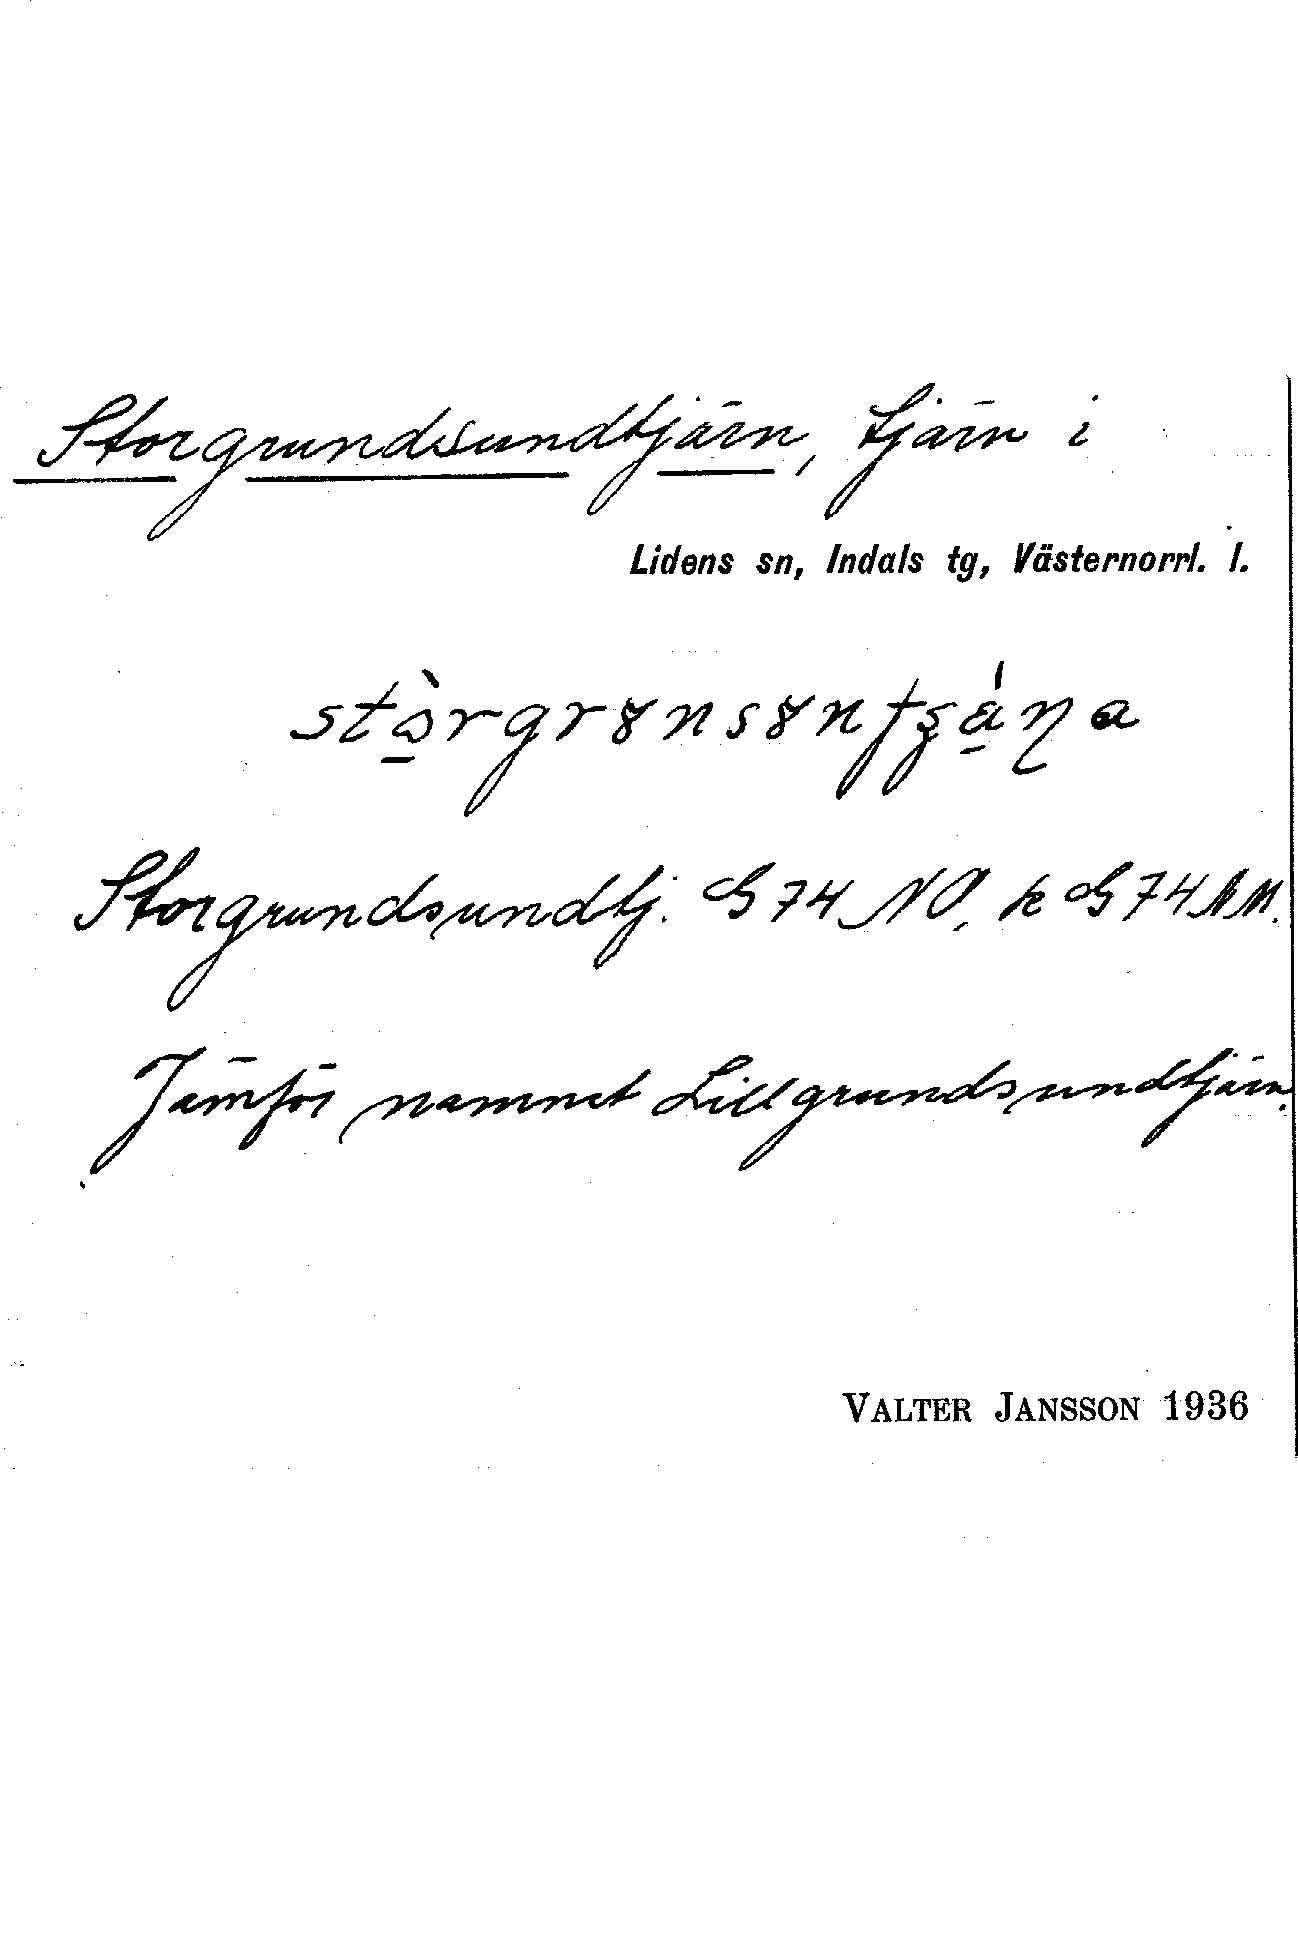 Storgrundsundtjärn, tjärn i
Lidens sn, Indals tg, Västernorrl. l.
Storgrundsundtj. G 74 NO. k G 74 NM.
Jämför namnet Lillgrundsundtjärn.
VALTER JANSSON 1936